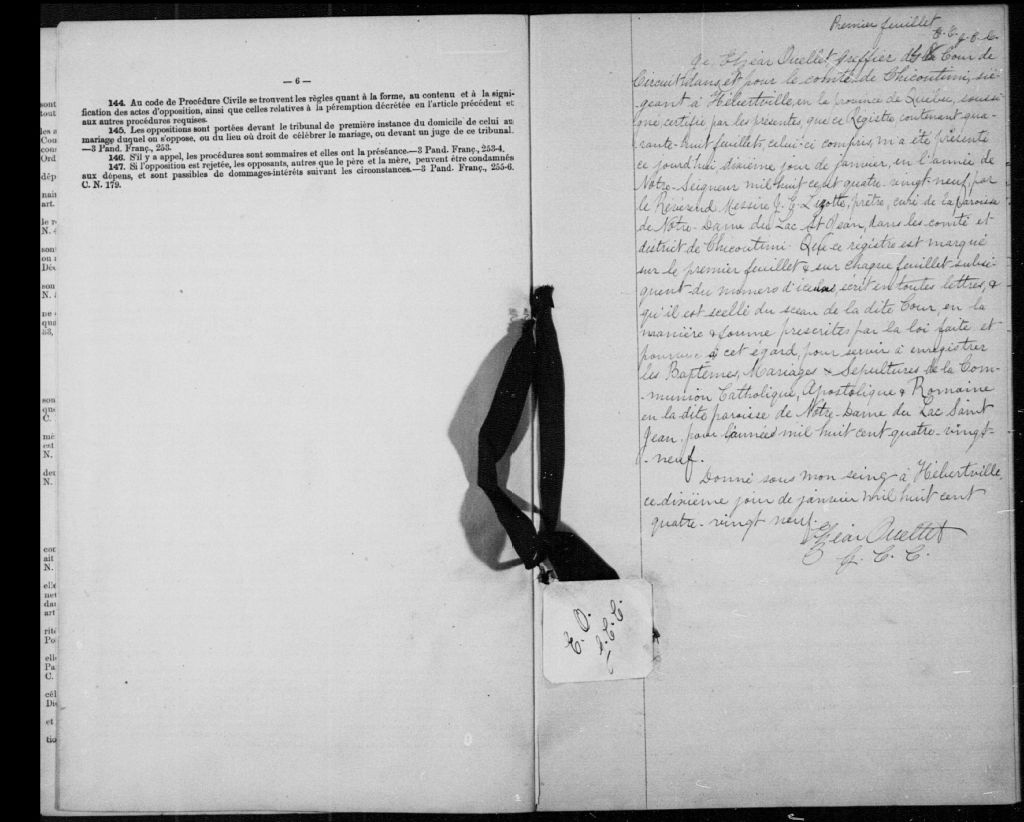 — 6 —
144. Au code de Procédure Civile se trouvent les règles quant à la forme, au contenu et à la signi-
fication des actes d'opposition, ainsi que celles relatives à la péremption décrétée en l'article précédent et
aux autres procédures requises.
145. Les oppositions sont portées devant le tribunal de première instance du domicile de celui au
mariage duquel on s'oppose, ou du lieu où droit de célébrer le mariage, ou devant un juge de ce tribunal.
—3 Pand. Franç., 253.
146. S'il y a appel, les procédures sont sommaires et elles ont la préséance.—3 Pand. Franç., 253-4.
147. Si l'opposition est rejetée, les opposants, autres que le père et la mère, peuvent être condamnés
aux dépens, et sont passibles de dommages-intérêts suivant les circonstances.—3 Pand. Franç., 255-6.
C. N. 179.
Premier feuillet
Je, Elzéar Ouellet, Greffier de la Cour de
Circuit dans et pour le comté de Chicoutimi, sié-
geant à Hébertville, en la province de Québec, soussi-
gné, certifie par les présentes, que ce Régistre contenant qua-
rante-huit feuillets, celui-ci compris, m'a été présenté
ce jourd'hui dixième jour de janvier, en l'année de
Notre-Seigneur mil huit cent quatre-vingt neuf, par
le Révérend Messire J. E. Lizotte, prêtre, curé de la paroisse
de Notre-Dame du Lac St Jean, dans les comté et
district de Chicoutimi. Que ce régistre est marqué
sur le premier feuillet & sur chaque feuillet subsé-
quent du numéro d'iceux, écrit en toutes lettres, &
qu'il est scellé du sceau de la dite Cour, en la
manière & forme prescrites par la loi faite et
pourvue à cet égard, pour servir à enregistrer
les Baptêmes, Mariages & Sépultures de la Com-
munion Catholique, Apostolique & Romaine
en la dite paroisse de Notre-Dame du Lac Saint
Jean, pour l'année mil huit cent quatre-vingt-
-neuf.
Donné sous mon seing à Hébertville,
ce dixième jour de janvier mil huit cent
quatre-vingt neuf.
Elzéar Ouellet
G. C. C.
E. O.
G. C. C.